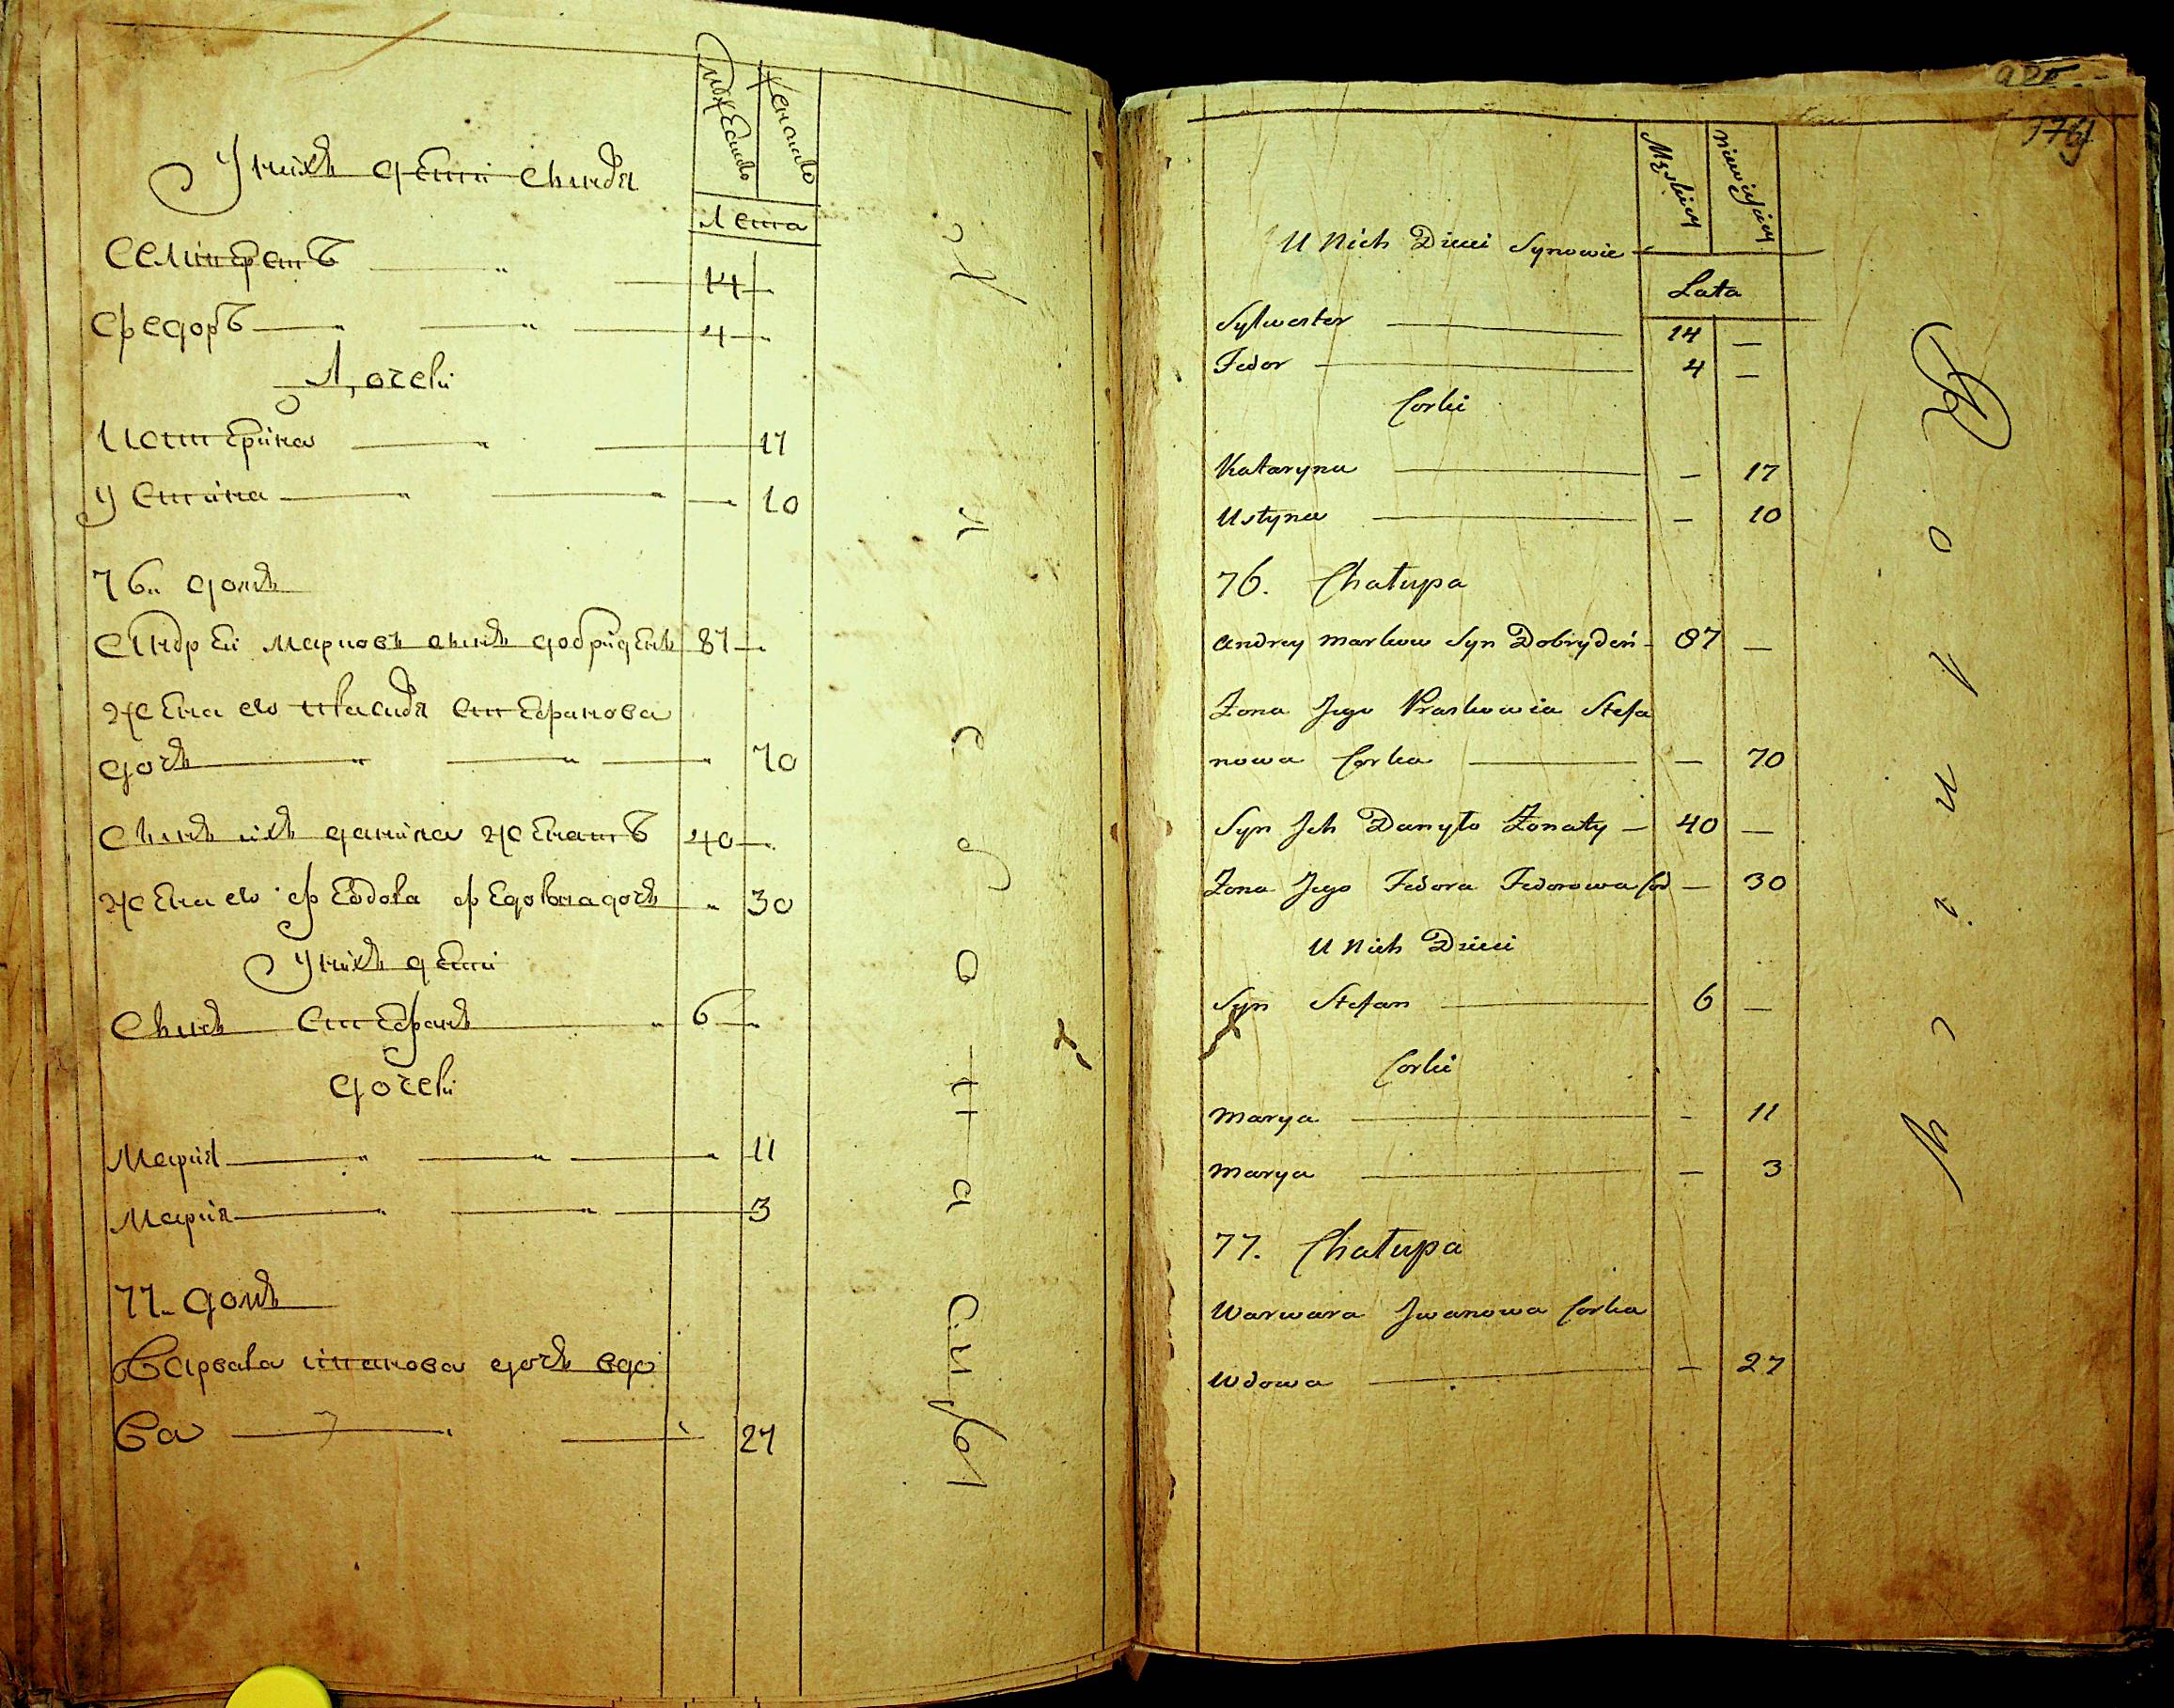 Мужеска
Женска
Лета
У нихъ дети сыновя
Селиверстъ 14
Федоръ 4
Дочеки
Катерина 17
Устина 10
76. домъ
Андрей Марковъ сынъ Добриденъ 87
жена его Стефанова
дочь 70
Сынъ ихъ Данила женатъ 40
жена его дочь 30
У нихъ дети
Сынъ Стефанъ 6
дочеки
Мария 11
Мария 3
77. домъ
Варвара Иванова дочь вдо
ва 27
176
Męskiey
Niewieściey
U Nich Dzieci Synowie
Lata
Sylwester 14 —
Fedor 4 —
Corki
Kataryna — 17
Ustyna — 10
76. Chałupa
Andrey Markow Syn Dobrydeń 87 —
Zona Jego Praskowia Stefa
nowa Corka — 70
Syn Jch Danyło Zonaty 40 —
Zona Jego Fedora Fedorowa Cor — 30
U Nich Dzieci
Syn Stefan 6 —
Corki
Marya — 11
Marya — 3
77. Chałupa
Warwara Jwanowa Corka
Wdowa — 27